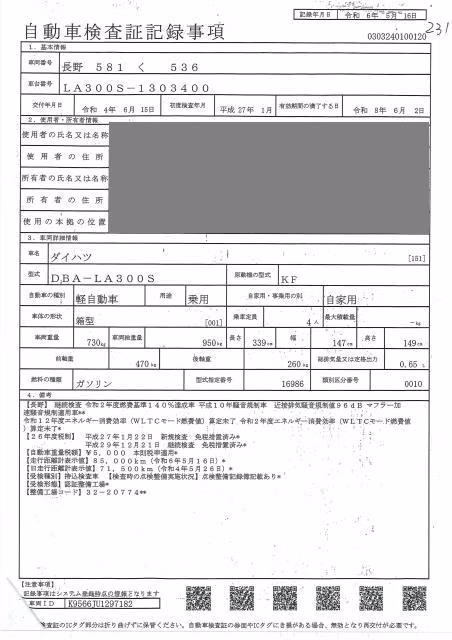 記録年月日 令和 6年 5月16日
自動車検査証記録事項
231
0303240100120
1. 基本情報
車両番号 長野 581 く 536
車台番号 LA300S-1303400
交付年月日 令和 4年 6月 15日 初度検査年月 平成 27年 1月 有効期間の満了する日 令和 8年 6月 2日
2. 使用者・所有者情報
使用者の氏名又は名称
使用者の住所
所有者の氏名又は名称
所有者の住所
使用の本拠の位置
3. 車両詳細情報
車名 ダイハツ [151]
型式 DBA-LA300S 原動機の型式 KF
自動車の種別 軽自動車 用途 乗用 自家用・事業用の別 自家用
車体の形状 箱型 [001] 乗車定員 4人 最大積載量 -kg
車両重量 730kg 車両総重量 950kg 長さ 339cm 幅 147cm 高さ 149cm
前軸重 470kg 後軸重 260kg 総排気量又は定格出力 0.65 L
燃料の種類 ガソリン 型式指定番号 16986 類別区分番号 0010
4. 備考
【長野】 継続検査 令和2年度燃費基準140%達成車 平成10年騒音規制車 近接排気騒音規制値96dB マフラー加
速騒音規制適用車**
令和12年度エネルギー消費効率(WLTCモード燃費値)算定未了 令和2年度エネルギー消費効率(WLTCモード燃費値
)算定未了*
【26年度税制】 平成27年1月22日 新規検査 免税措置済み*
平成29年12月21日 継続検査 免税措置済み*
【自動車重量税額】¥5,000 本則税率適用*
【走行距離計表示値】85,000km(令和6年5月16日)*
【旧走行距離計表示値】71,500km(令和4年5月26日)*
【受検種別】持込検査車 【検査時の点検整備実施状況】点検整備記録簿記載あり*
【受検形態】認証整備工場*
【整備工場コード】32-20774**
【注意事項】
記録事項はシステム登録時点の情報となります
車両ID K9566JU1297182
検査証のICタグ部分は折り曲げずに保管ください。自動車検査証の券面やICタグに き損がある場合、無効となり再交付が必要です。